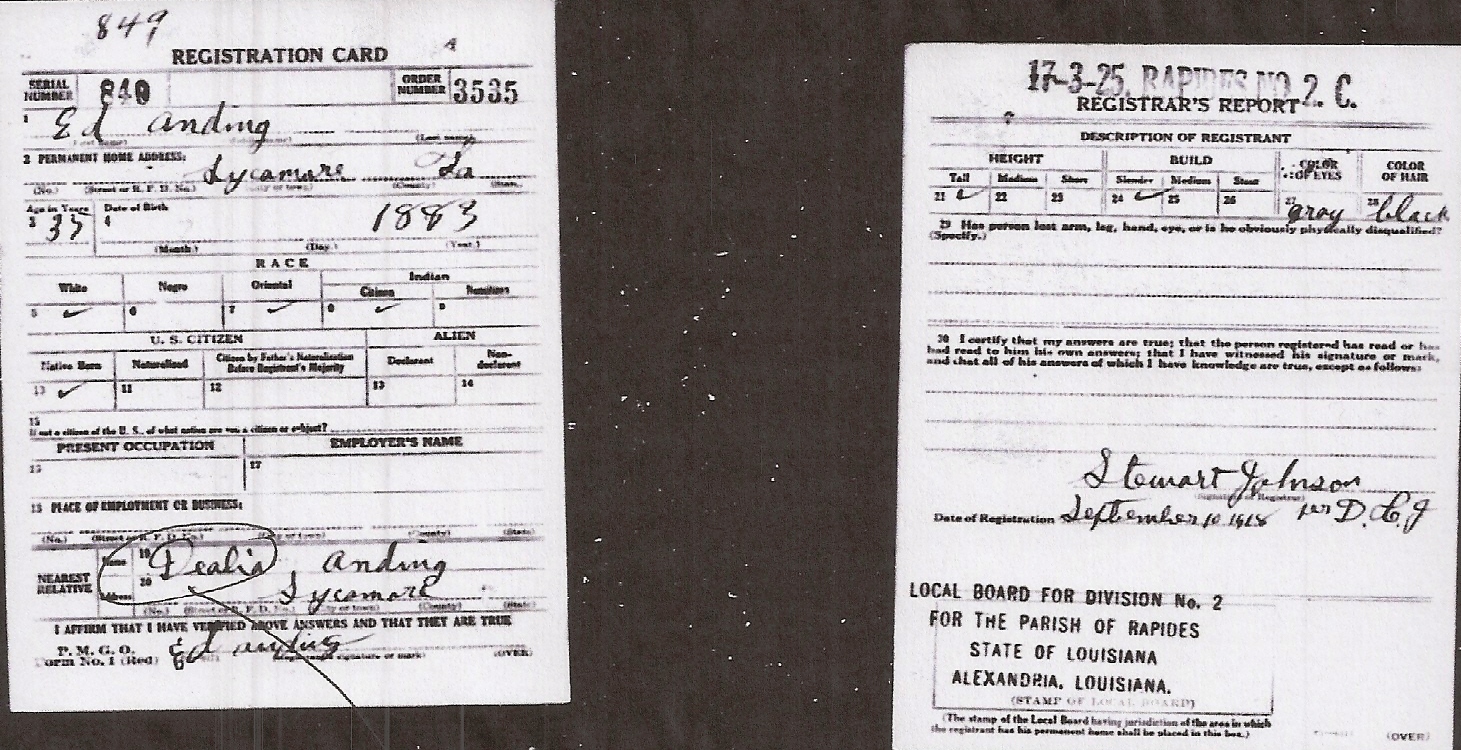 849
REGISTRATION CARD
SERIAL NUMBER 840 ORDER NUMBER 3535
1 Ed Anding
(First name) (Middle name) (Last name)
2 PERMANENT HOME ADDRESS:
Sycamore La
(No.) (Street or R. F. D. No.) (City or town) (County) (State)
Age in Years Date of Birth
3 35 4 1883
(Month.) (Day.) (Year.)
RACE
White Negro Oriental Indian
Citizen Noncitizen
5 ✓ 6 7 ✓ 8 ✓ 9
U. S. CITIZEN ALIEN
Native Born Naturalized Citizen by Father's Naturalization Before Registrant's Majority Declarant Non-declarant
10 ✓ 11 12 13 14
15
If not a citizen of the U. S., of what nation are you a citizen or subject?
PRESENT OCCUPATION EMPLOYER'S NAME
16 17
18 PLACE OF EMPLOYMENT OR BUSINESS:
(No.) (Street or R. F. D. No.) (City or town) (County) (State)
NEAREST RELATIVE Name 19 Dealia Anding
Address 20 Sycamore
(No.) (Street or R. F. D. No.) (City or town) (County) (State)
I AFFIRM THAT I HAVE VERIFIED ABOVE ANSWERS AND THAT THEY ARE TRUE
P. M. G. O.
Form No. 1 (Red) Ed Anding
(Registrant's signature or mark) (OVER)
17-3-25. RAPIDES NO. 2. C.
REGISTRAR'S REPORT
DESCRIPTION OF REGISTRANT
HEIGHT BUILD COLOR OF EYES COLOR OF HAIR
Tall Medium Short Slender Medium Stout
21 ✓ 22 23 24 ✓ 25 26 27 gray 28 black
29 Has person lost arm, leg, hand, eye, or is he obviously physically disqualified?
(Specify.)
30 I certify that my answers are true; that the person registered has read or has
had read to him his own answers; that I have witnessed his signature or mark,
and that all of his answers of which I have knowledge are true, except as follows:
Stewart Johnson
(Signature of Registrar)
Date of Registration September 10 1918 per D. C. J
LOCAL BOARD FOR DIVISION No. 2
FOR THE PARISH OF RAPIDES
STATE OF LOUISIANA
ALEXANDRIA, LOUISIANA.
(STAMP OF LOCAL BOARD)
(The stamp of the Local Board having jurisdiction of the area in which
the registrant has his permanent home shall be placed in this box.)
(OVER)